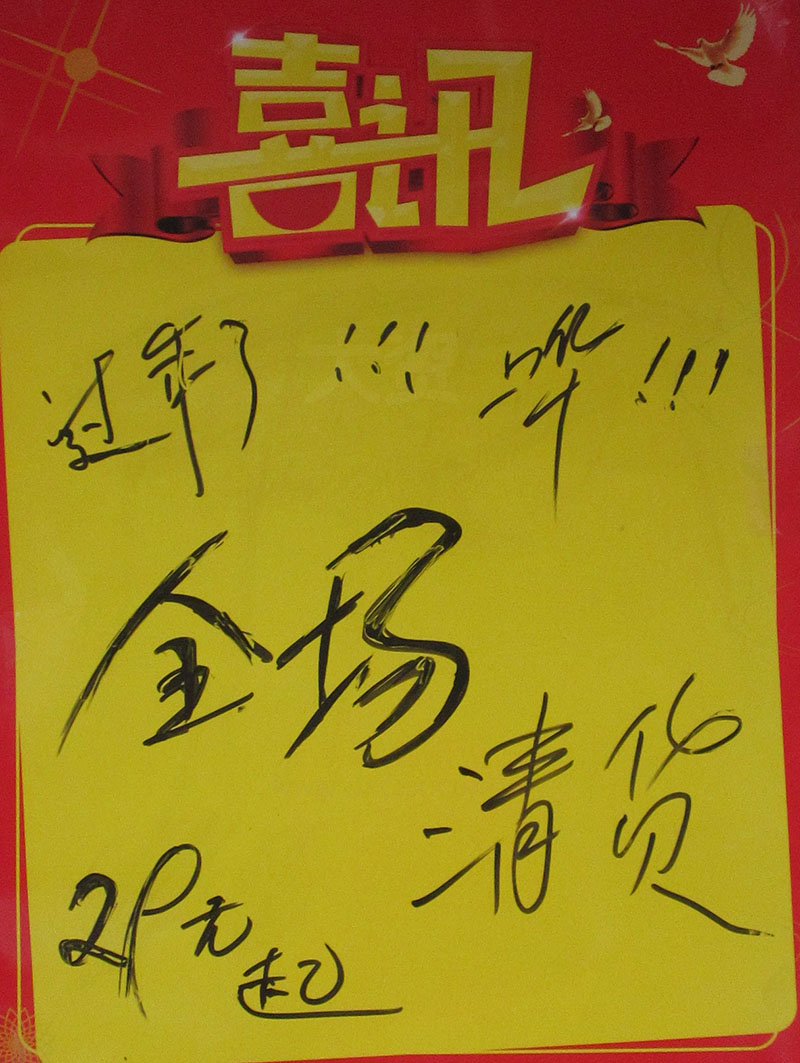 喜讯
过季了!!! 哗!!!
全场
清货
29元起